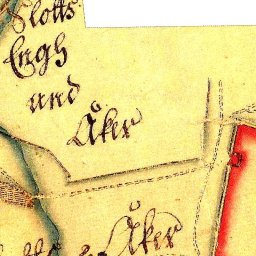 Slotts
Engh
und
Åker
Åker